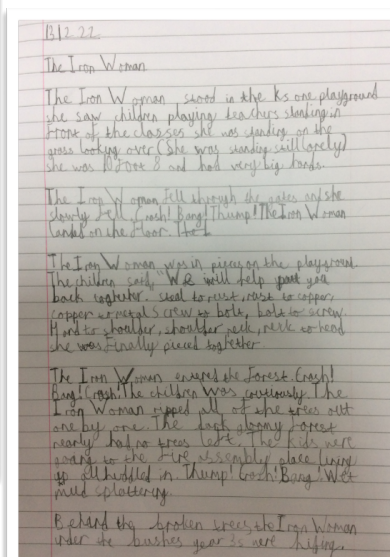 13.12.22
The Iron Woman
The Iron Woman stood in the Ks one playground
she saw children playing teachers standing in
front of the classes she was standing on the
grass looking over (she was standing still
she was 10 foot 8 and had very big hands.
The Iron Woman fell through the gates and she
slowly fell Crash! Bang! Thump! The Iron Woman
landed on the floor. The I
The Iron Woman was in pieces on the playground.
The children said, "We will help put you
back together. steal to rust, rust to copper,
copper to metal screw to bolt, bolt to screw.
Hand to shoulder, shoulder neck, neck to head
she was finally pieced together.
The Iron Woman entered the Forest. Crash!
Bang! Crash! The children was The
Iron Woman ripped all of the trees out
one by one. The dark gloomy forest
nearly had no trees left. The kids were
going to the fire assembly place lining
up all huddled in. Thump! Crash! Bang! Wet
mud splattering.
Behind the broken trees, the Iron Woman
under the bushes year 3s were hiding.